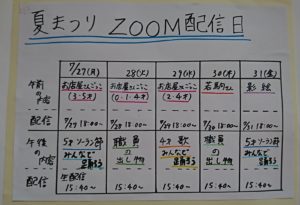 夏まつり ZOOM配信日
7/27(月) 28(火) 29(水) 30(木) 31(金)
午前の内容 お店屋さんごっこ (3.5才) お店屋さんごっこ (0.1.4才) お店屋さんごっこ (2.4才) 影絵
配信 7/29 18:00~ 18:00~ 18:00~ 18:00~ 18:00~
午後の内容 5才ソーラン節 みんなで踊ろう 職員の出し物 4才 歌 みんなで踊ろう 職員の出し物 5才ソーラン節 みんなで踊ろう
配信 生配信 15:40~ 15:40~ 15:40~ 15:40~ 15:40~